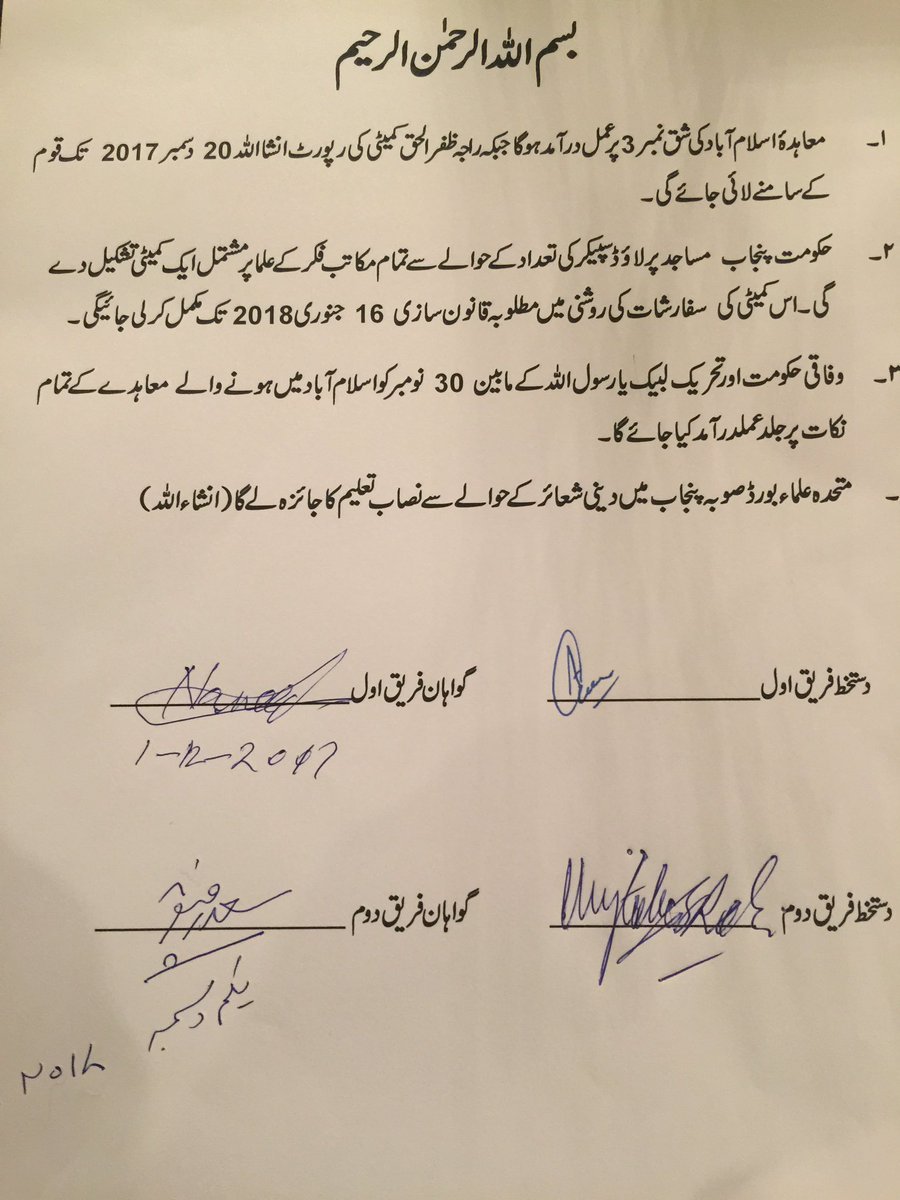 بسم اللہ الرحمٰن الرحیم
۱۔ معاہدۂ اسلام آباد کی شق نمبر 3 پر عمل درآمد ہوگا جبکہ راجہ ظفر الحق کمیٹی کی رپورٹ انشا اللہ 20 دسمبر 2017 تک قوم
کے سامنے لائی جائے گی۔
۲۔ حکومت پنجاب مساجد پر لاؤڈ سپیکر کی تعداد کے حوالے سے تمام مکاتب فکر کے علما پر مشتمل ایک کمیٹی تشکیل دے
گی۔ اس کمیٹی کی سفارشات کی روشنی میں مطلوبہ قانون سازی 16 جنوری 2018 تک مکمل کر لی جائیگی۔
۳۔ وفاقی حکومت اور تحریک لبیک یا رسول اللہ کے مابین 30 نومبر کو اسلام آباد میں ہونے والے معاہدے کے تمام
نکات پر جلد عملدرآمد کیا جائے گا۔
۔ متحدہ علماء بورڈ صوبہ پنجاب میں دینی شعائر کے حوالے سے نصاب تعلیم کا جائزہ لے گا (انشاء اللہ)
دستخط فریق اول گواہان فریق اول
1-12-2017
دستخط فریق دوم گواہان فریق دوم
یکم دسمبر
۲۰۱۷